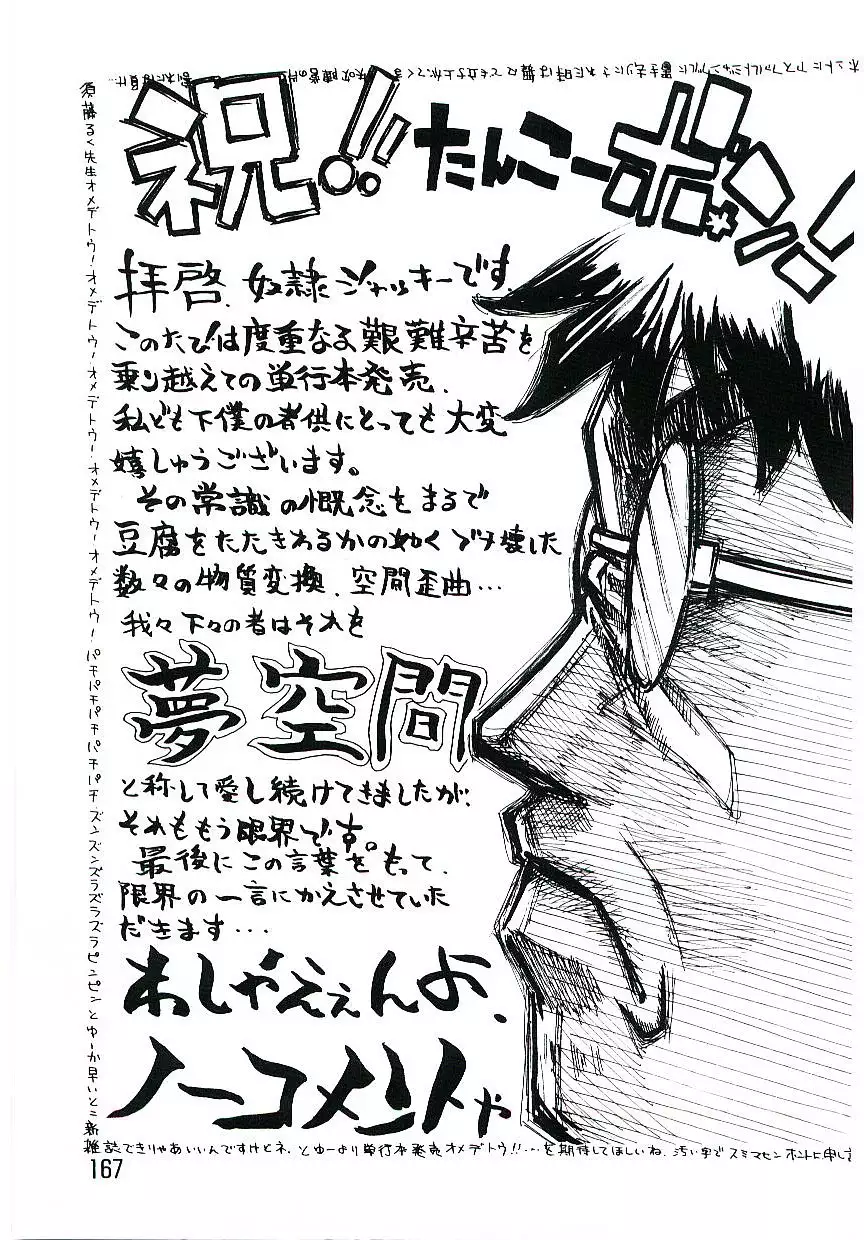 祝!! たんこーボン!!
拝啓、奴隷ジャッキーです。
このたびは度重なる艱難辛苦を
乗り越えての単行本発売、
私ども下僕の者供にとっても大変
嬉しゅうございます。
その常識の慨念をまるで
豆腐をたたきわるかの如くブチ壊した
数々の物質変換、空間歪曲…
我々下々の者はそれを
夢空間
と称して愛し続けてきましたが、
それももう限界です。
最後にこの言葉をもって、
限界の一言にかえさせていた
だきます…
わしゃええんよ、
ノーコメントや
須藤るく先生オメデトウ!オメデトウ!オメデトウ!オメデトウ!オメデトウ!パチパチパチパチパチパチズンズンズラズラズラピンピンとゆーか早いとこ新
雑誌できりゃあいいんですけどネ、とゆーより単行本発売オメデトウ!!…を期待してほしいね、汚い字でスミマセンホントに申し
ホントにアスファルトジャングルに
167